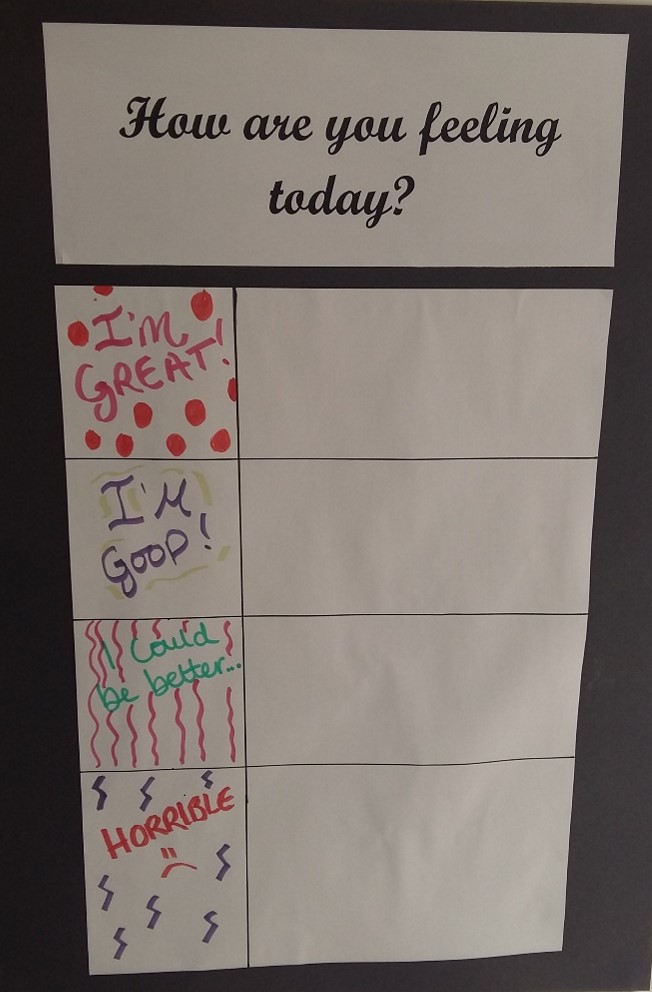 How are you feeling
today?
I'M
GREAT!
I'M
GOOD!
I Could
be better...
HORRIBLE